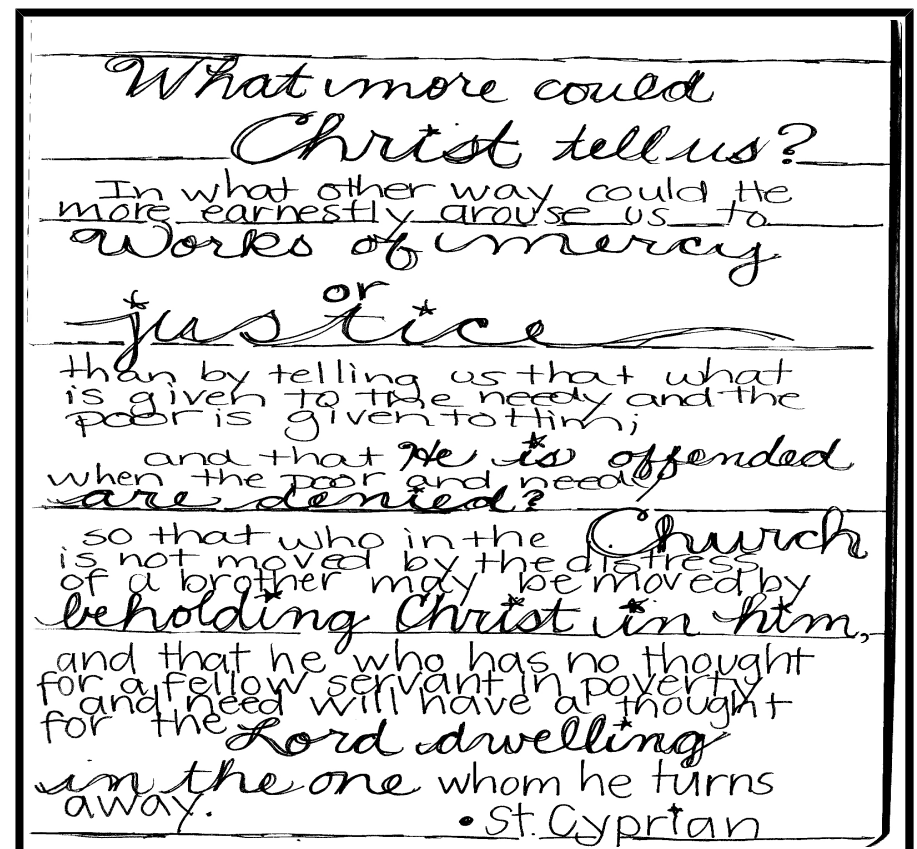 What more could
Christ tell us?
In what other way could He
more earnestly arouse us to
works of mercy
or
justice
than by telling us that what
is given to the needy and the
poor is given to Him;
and that He is offended
when the poor and needy
are denied?
so that who in the Church
is not moved by the distress
of a brother may be moved by
beholding Christ in him,
and that he who has no thought
for a fellow servant in poverty
and need will have a thought
for the Lord dwelling
in the one whom he turns
away.
• St. Cyprian